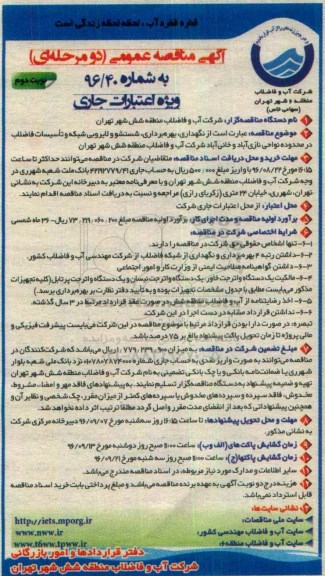 قطره قطره آب، لحظه لحظه زندگی است
آگهی مناقصه عمومی (دو مرحله‌ای)
به شماره ۹۶/۴۰
ویژه اعتبارات جاری
نوبت دوم
شرکت آب و فاضلاب
منطقه ۶ شهر تهران
(سهامی خاص)
۱- نام دستگاه مناقصه‌گزار: شرکت آب و فاضلاب منطقه شش شهر تهران
۲- موضوع مناقصه: عبارت است از نگهداری، بهره‌برداری، شستشو و لایروبی شبکه و تأسیسات فاضلاب
در محدوده نواحی نازی‌آباد و خانی‌آباد شرکت آب و فاضلاب منطقه شش شهر تهران
۳- مهلت خرید و محل دریافت اسناد مناقصه: متقاضیان شرکت در مناقصه می‌توانند حداکثر تا ساعت
۱۶:۱۵ مورخ ۹۶/۰۸/۲۲ با واریز مبلغ ۵۰۰/۰۰۰ ریال به حساب جاری بانک ملت شعبه شهرری در
وجه شرکت آب و فاضلاب منطقه شش شهر تهران و با معرفی‌نامه معتبر به دبیرخانه این شرکت به نشانی
تهران، شهرری، خیابان ۲۴ متری (زکریای رازی) مراجعه و نسبت به دریافت اسناد مناقصه اقدام نمایند.
۴- محل اعتبار: از محل اعتبارات جاری شرکت
۵- برآورد اولیه مناقصه و مدت اجرای کار: برآورد اولیه مناقصه مبلغ ریال - ۳۶ ماه شمسی
۶- شرایط اختصاصی شرکت در مناقصه:
۶-۱- تنها اشخاص حقوقی حق شرکت در مناقصه را دارند.
۶-۲- داشتن رتبه ۴ بهره‌برداری و نگهداری از شبکه فاضلاب از شرکت مهندسی آب و فاضلاب کشور.
۶-۳- داشتن گواهینامه صلاحیت ایمنی از وزارت کار و امور اجتماعی
۶-۴- مالکیت دستگاه واترجت خاور، یک دستگاه واترجت نیسان و یک دستگاه واترجت پرتابل (کلیه تجهیزات
مذکور می‌بایست مطابق با جدول مشخصات تجهیزات بوده و به تأیید دفتر نظارت بر بهره‌برداری برسد.)
۶-۵- اخذ رضایتنامه از آب و فاضلاب منطقه شش در صورت عقد قرارداد مرتبط در ۳ سال گذشته.
۶-۶- نداشتن قرارداد مشابه در دست اجرا در این شرکت.
تبصره: در صورت دارا بودن قرارداد مرتبط با موضوع مناقصه در این شرکت می‌بایست پیشرفت فیزیکی و
مالی پروژه تا زمان تحویل پاکت پیشنهاد بالغ بر ۷۵ درصد باشد.
۷- مبلغ تضمین شرکت در مناقصه: به میزان ریال می‌باشد که شرکت‌کنندگان در
مناقصه می‌توانند به صورت واریز نقدی به حساب جاری شماره نزد بانک ملی شعبه بلوار
شهرری یا ضمانت‌نامه بانکی و یا چک بانکی تضمینی به نام شرکت آب و فاضلاب منطقه شش شهر تهران
تهیه و ضمیمه پیشنهاد به دستگاه مناقصه‌گزار تسلیم نمایند. به پیشنهادهای فاقد مهر و امضاء، مشروط،
مخدوش، فاقد سپرده و سپرده‌های مخدوش یا سپرده‌های کمتر از میزان مقرر، چک شخصی و نظایر آن و
همچنین پیشنهاداتی که بعد از انقضای مدت مقرر واصل گردد مطلقاً ترتیب اثر داده نخواهد شد.
۸- مهلت و محل تحویل پیشنهادها: تا ساعت ۱۶:۱۵ روز سه‌شنبه مورخ ۹۶/۰۹/۰۷ دبیرخانه مرکزی شرکت
به نشانی مذکور.
۹- زمان گشایش پاکت‌های (الف و ب): ساعت ۱۱:۰۰ صبح روز دوشنبه مورخ ۹۶/۰۹/۱۳
۱۰- زمان گشایش پاکتها(ج): ساعت ۱۱:۰۰ صبح روز سه‌شنبه مورخ ۹۶/۰۹/۲۱
۱۱- سایر اطلاعات و مدارک مورد نیاز مربوطه، در اسناد مناقصه مندرج می‌باشد.
۱۲- هزینه درج دو نوبت آگهی به عهده برنده مناقصه می‌باشد و مبلغ پرداختی بابت خرید اسناد مناقصه
قابل استرداد نمی‌باشد.
۱۳- نشانی سایت‌ها:
سایت ملی مناقصات: http://iets.mporg.ir
سایت شرکت آب و فاضلاب مهندسی کشور: www.nww.ir
سایت آب و فاضلاب منطقه ۶: www.t6ww.tpww.ir
دفتر قراردادها و امور بازرگانی
شرکت آب و فاضلاب منطقه شش شهر تهران